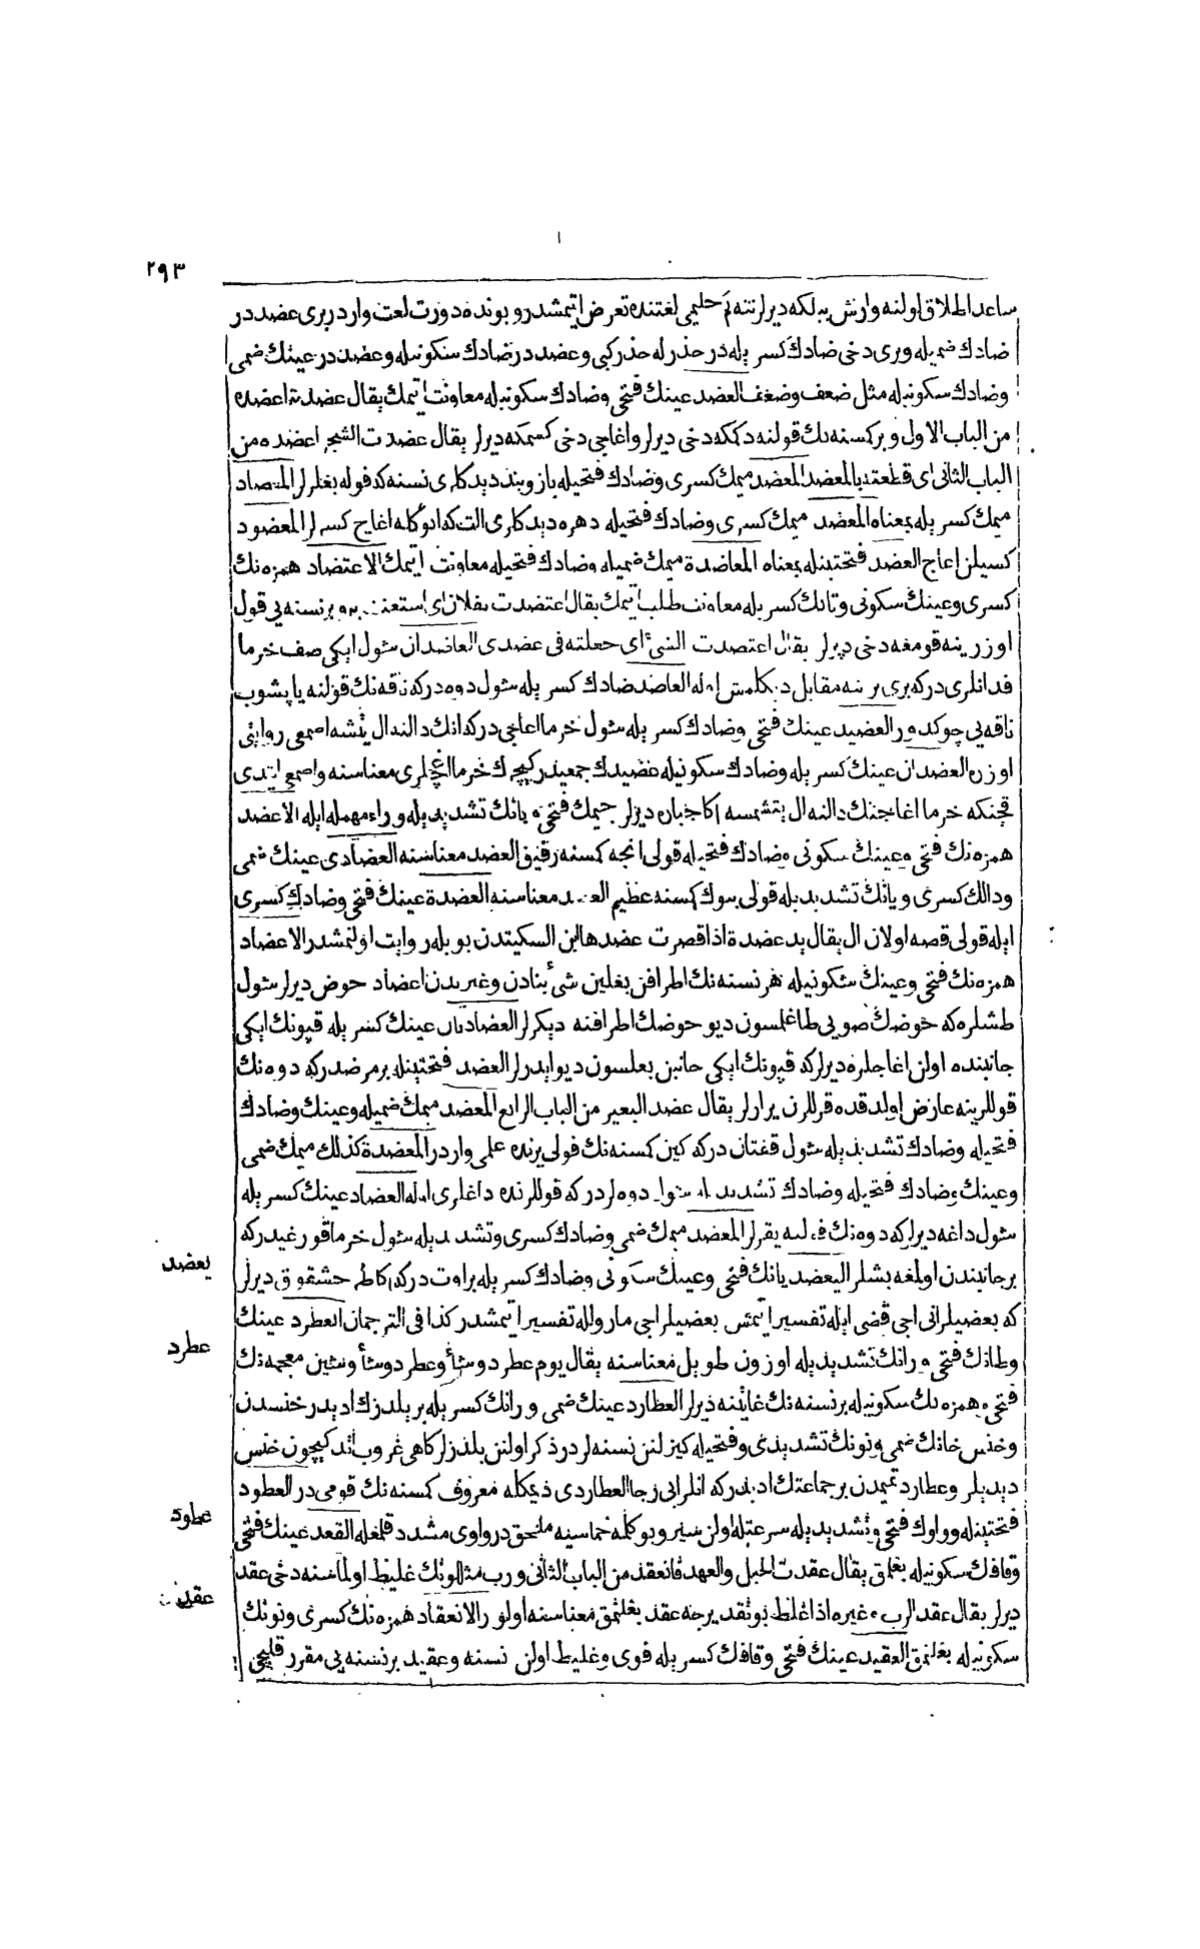 ٢٩٣
ساعد اطلاق اولنه وارنش بيلكه ديرلر نته كم حليمى لغتنده تعرض اتيمشدر و بونده دورت لغت واردر برى عضد در
ضادك ضميله و برى دخى ضادك كسر يله در حذر له حذر كبى و عضد در ضادك سكونيله و عضد در عينك ضمى
و ضادك سكونيله مثل ضعف و ضعف العضد عينك فتحى و ضادك سكونيله معاونت اتيمك يقال عضدته اعضده
من الباب الاول و بر كسنه نك قولنه دكمكه دخى ديرلر و اغاجى دخى كسمكه ديرلر يقال عضدت الشجر اعضده من
الباب الثانى اى قطعته بالمعضد المعضد ميمك كسرى و ضادك فتحيله بازوبند ديدكلرى نسنه كه قوله بغلرلر المعضاد
ميمك كسر يله بمعناه المعضد ميمك كسرى و ضادك فتحيله دهره ديدكلرى الت كه انوكله اغاج كسرلر المعضود
كسيلن اغاج العضد فتحتينله بمعناه المعاضدة ميمك ضميله و ضادك فتحيله معاونت ايتمك الاعتضاد همزه نك
كسرى و عينك سكونى و تانك كسر يله معاونت طلب اتيمك يقال اعتضدت بفلان اى استعنت به و بر نسنه يى قول
اوزرينه قومغه دخى ديرلر يقال اعتضدت الشئ اى جعلته فى عضدى العاضدان شول ايكى صف خرما
فدانلرى در كه برى برينه مقابل دكلمش اوله العاضد ضادك كسر يله شول دوه در كه ناقه نك قولنه ياپشوب
ناقه يى چوكدورر العضيد عينك فتحى و ضادك كسر يله شول خرما اغاجى در كه انك دالنه ال يتشه اصمعى روايتى
اوزره العضدان عينك كسر يله و ضادك سكونيله عضيدك جمعيدر كيچك خرما اغچلرى معناسنه و اصمعى ايتدى
قچنكه خرما اغاجنك دالنه ال يتشمسه اكا جبار ديرلر جيمك فتحى و يانك تشديديله و راء مهمله ايله الاعضد
همزه نك فتحى و عينك سكونى و ضادك فتحيله قولى انجه كسنه رقيق العضد معناسنه العضادى عينك ضمى
و دالك كسرى و يانك تشديديله قولى بيوك كسنه عظيم العضد معناسنه العضدة عينك فتحى و ضادك كسرى
ايله قولى قصه اولان ال يقال يد عضدة اذا قصرت عضدها ابن السكيتدن بويله روايت اولنمشدر الاعضاد
همزه نك فتحى و عينك سكونيله هر نسنه نك اطرافن بغلين شئ بنادن و غيريدن اعضاد حوض ديرلر شول
طشلره كه حوضك صويى طاغلمسون ديو حوضك اطرافنه ديكرلر العضادتان عينك كسر يله قپونك ايكى
جانبنده اولن اغاجلره ديرلر كه قپونك ايكى جانبن بغلسون ديو ايدرلر العضد فتحتينله بر مرضدر كه دوه نك
قوللرينه عارض اولدقده قوللرن يرارلر يقال عضد البعير من الباب الرابع المعضد ميمك ضميله و عينك و ضادك
فتحيله و ضادك تشديديله شول قفتان در كه كين كسنه نك قولى يرنده علمى واردر المعضدة كذلك ميمك ضمى
و عينك و ضادك فتحيله و ضادك تشديديله شول دوه لردر كه قوللرنده داغلرى اوله العضاد عينك كسر يله
شول داغه ديرلر كه دوه نك قولنه يقرلر المعضد ميمك ضمى و ضادك كسرى و تشديديله شول خرما قورغيدر كه
بر جانبندن اولمغه بشلر اليعضد يانك فتحى و عينك سكونى و ضادك كسر يله بر اوت در كه اكا طرحشقوق ديرلر
كه بعضيلر انى اجى قضى ايله تفسير اتمش بعضيلر اجى مارولله تفسير اتيمشدر كذا فى الترجمان العطرد عينك
و طانك فتحى و رانك تشديديله اوزون طويل معناسنه يقال يوم عطرد و شأو عطرد و شأو شين معجمه نك
فتحى و همزه نك سكونيله بر نسنه نك غايتنه ديرلر العطارد عينك ضمى و رانك كسر يله بر يلدزك اديدر خنسدن
و خنس خانك ضمى و نونك تشديدى و فتحيله كيزلنن نسنه لردر ذكر اولنن يلدزلر كاهى غروب اتدكيچون خنس
ديديلر و عطارد تميمدن بر جماعتك اديدر كه انلر ابى رجا العطاردى ديمكله معروف كسنه نك قومى در العطود
فتحتينله و واوك فتحى و تشديديله سرعتله اولن سير و بو كلمه خماسيه ملحق در واوى مشدد قلمغله العقد عينك فتحى
و قافك سكونيله بغلمق يقال عقدت الحبل و العهد فانعقد من الباب الثانى و رب مثللونك غليظ اولماسنه دخى عقد
ديرلر يقال عقد الرب و غيره اذا غلظ بو تقديرجه عقد بغلنمق معناسنه اولور الانعقاد همزه نك كسرى و نونك
سكونيله بغلنمق العقيد عينك فتحى و قافك كسر يله قوى و غليظ اولن نسنه و عقيد بر نسنه يى مقرر قليجى
يعضد
عطرد
عطود
عقد